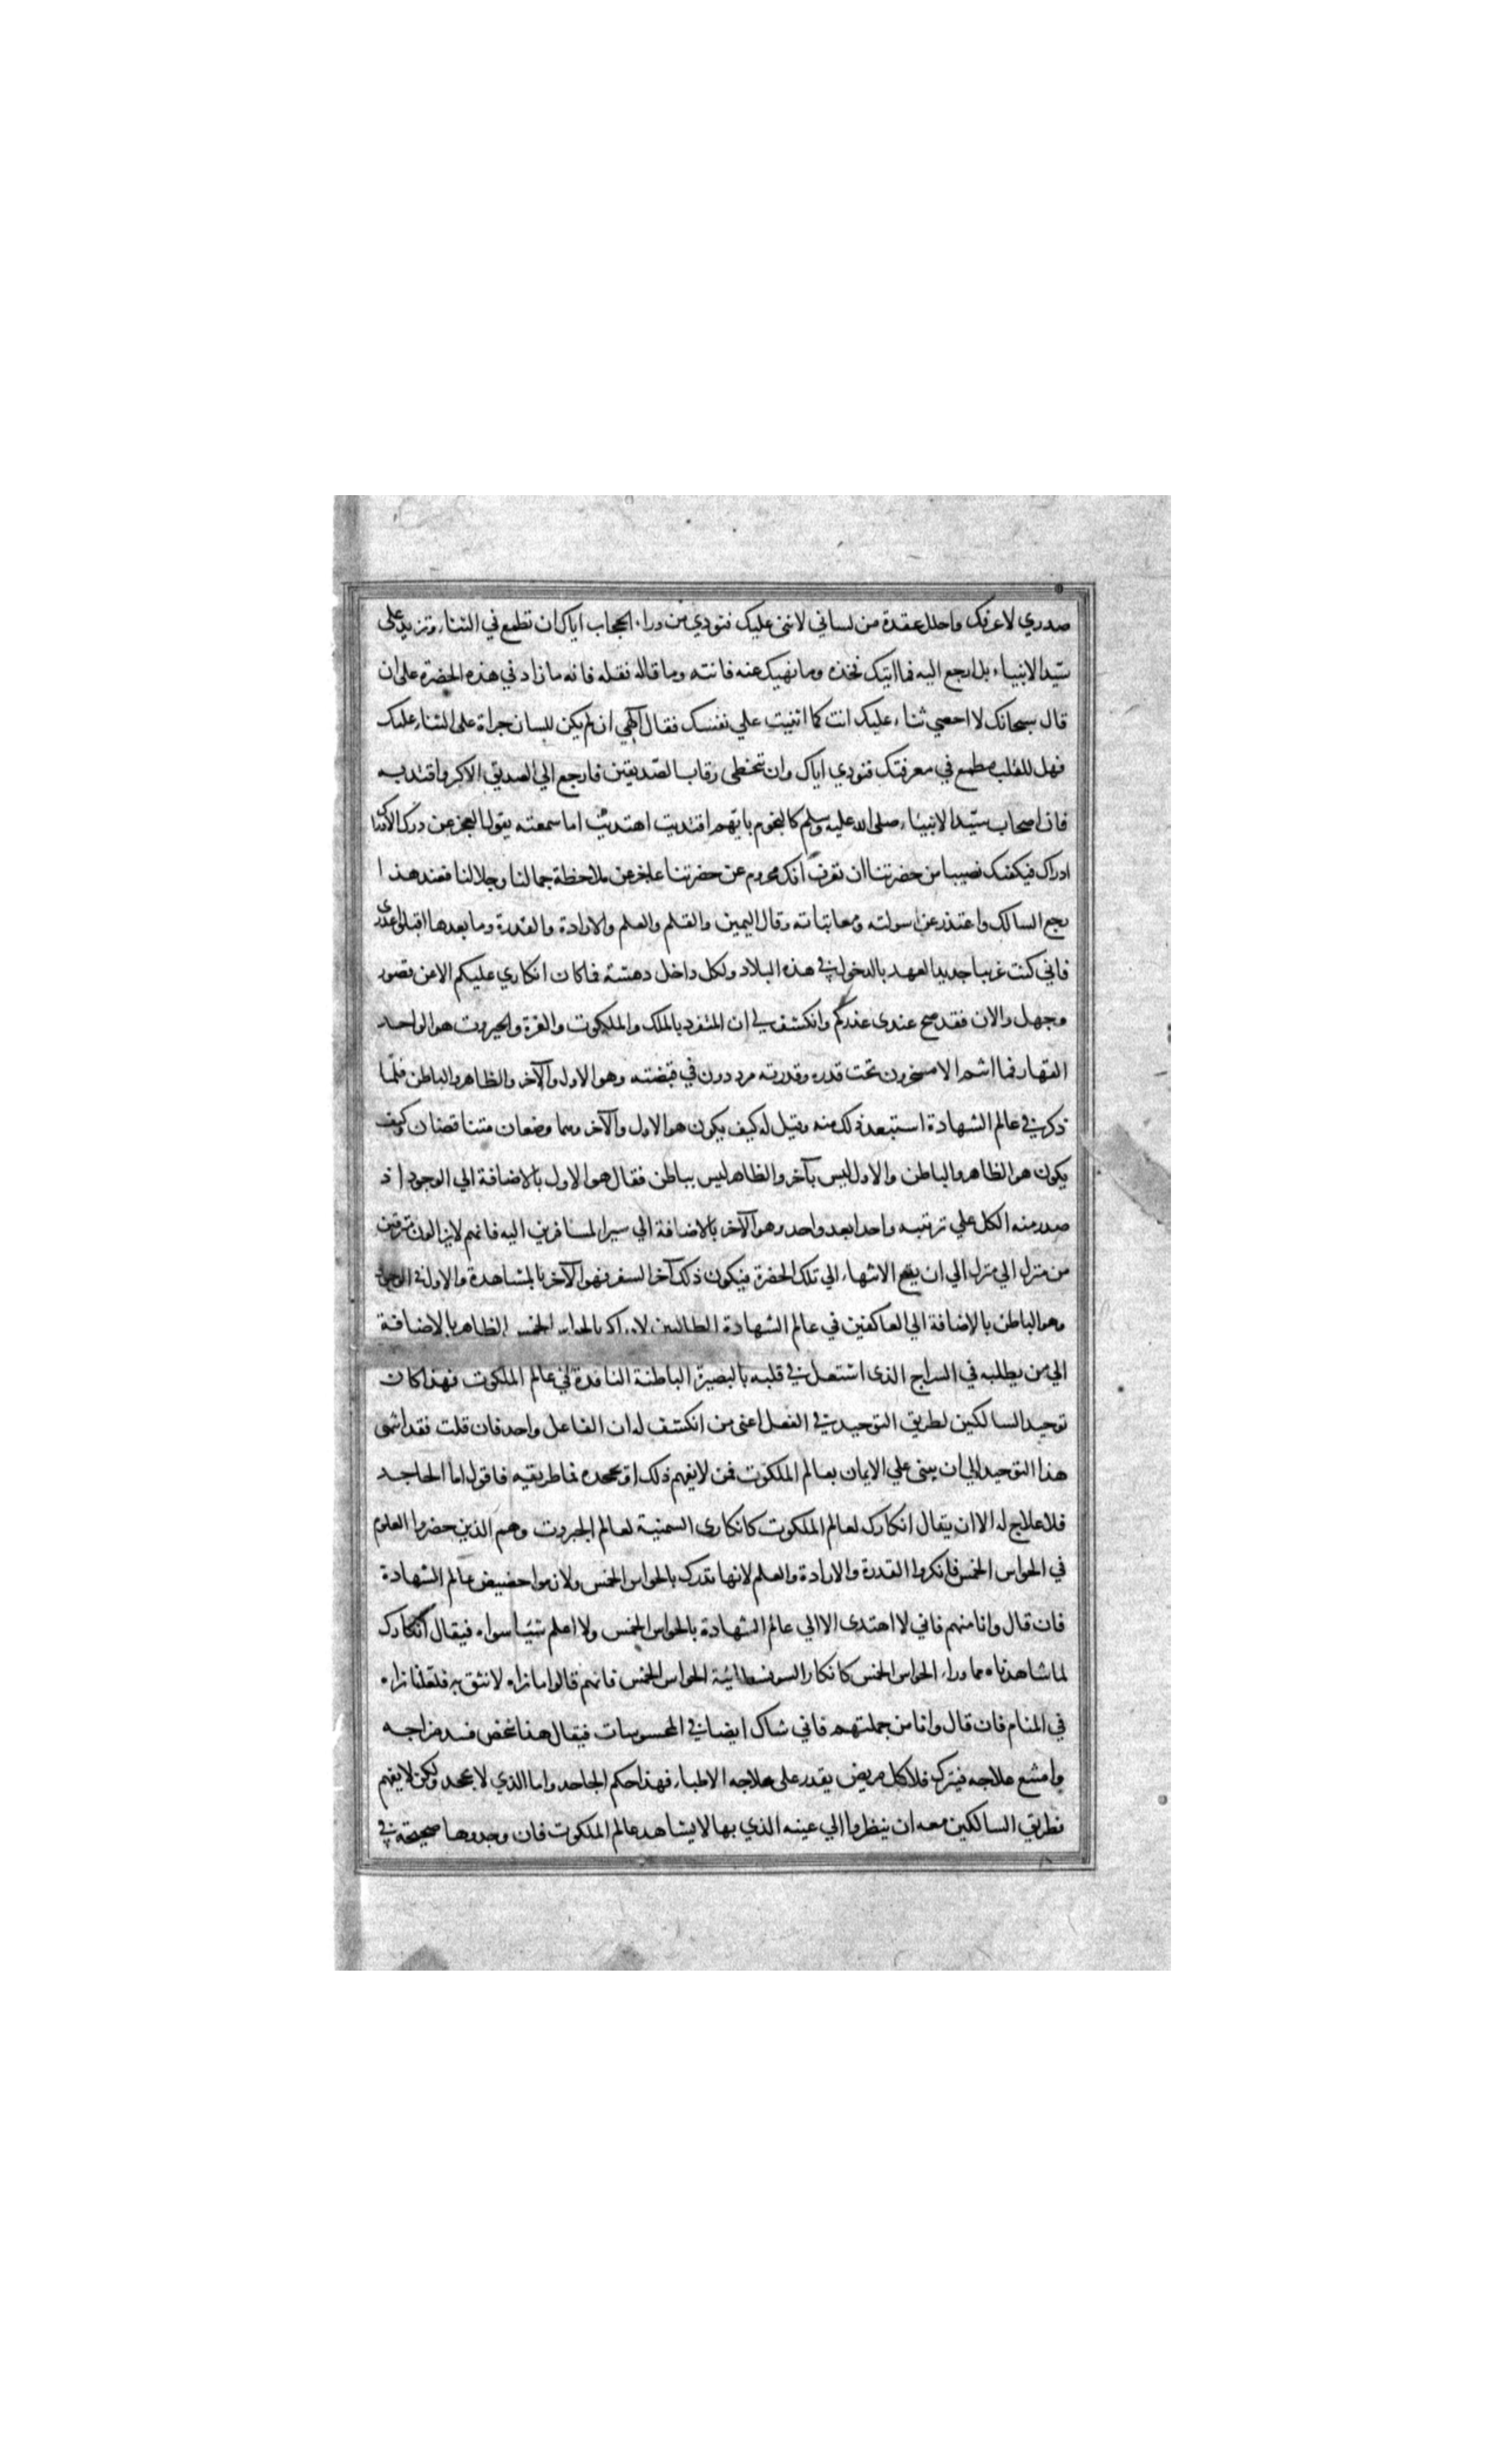 صدري لاعرفك واحلل عقدة من لساني لاثني عليك فنودي من وراء الحجاب اياك ان تطمع في الثناء وتزيد على
سيد الانبياء بل ارجع اليه فما اتيك فخذه وما نهيك عنه فانته وما قاله فقله فانه ما زاد في هذه الحضرة على ان
قال سبحانك لا احصي ثناء عليك انت كما اثنيت علي نفسك فقال آلهي ان لم يكن للسان جراة على الثناء عليك
فهل للقلب مطمع في معرفتك فنودي اياك وان تتخطى رقاب الصديقين فارجع الي الصديق الاكبر واقتد به
فان اصحاب سيد الانبياء صلى الله عليه وسلم كالنجوم بايهم اقتديت اهتديت اما سمعته يقول العجز عن درك الادراك
ادراك فيكفيك نصيبا من حضرتنا ان تعرف انك محروم عن حضرتنا عاجز عن ملاحظة جمالنا وجلالنا فعند هذا
رجع السالك واعتذر عن اسولته ومعاتباته وقال لليمين والقلم والعلم والارادة والقدرة وما بعدها اقبلوا عذرى
فاني كنت غريبا جديد العهد بالدخول في هذه البلاد ولكل داخل دهشة فما كان انكاري عليكم الا عن قصور
وجهل والان فقد صح عندى عذركم وانكشف لي ان المتفرد بالملك والملكوت والعزة والجبروت هو الواحد
القهار فما انتم الا مسخرون تحت قدره وقدرته مرددون في قبضته وهو الاول والآخر والظاهر والباطن فلما
ذكر في عالم الشهادة استبعد ذلك منه وقيل له كيف يكون هو الاول والآخر وهما وصفان متناقضان وكيف
يكون هو الظاهر والباطن والاول ليس بآخر والظاهر ليس بباطن فقال هو الاول بالاضافة الي الوجود اذ
صدر منه الكل علي ترتيبه واحدا بعد واحد وهو الآخر بالاضافة الي سير المسافرين اليه فانهم لا يزالون مترقين
من منزل الي منزل الي ان يقع الانتهاء الي تلك الحضرة فيكون ذلك آخر السفر فهو الآخر بالمشاهدة والاول في الوجود
وهو الباطن بالاضافة الي العاكفين في عالم الشهادة الطالبين لادراكه بالحواس الخمس الظاهر بالاضافة
الي من يطلبه في السراج الذى اشتعل في قلبه بالبصيرة الباطنة النافدة في عالم الملكوت فهذا كان
توحيد السالكين لطريق التوحيد في الفعل اعنى من انكشف له ان الفاعل واحد فان قلت فقد انتهى
هذا التوحيد الي ان يبنى علي الايمان بعالم الملكوت فمن لا يفهم ذلك او يجحده فما طريقه فاقول اما الجاحد
فلا علاج له الا ان يقال انكارك لعالم الملكوت كانكارى السمنية لعالم الجبروت وهم الذين حضروا العلوم
في الحواس الخمس فانكروا القدرة والارادة والعلم لانها تدرك بالحواس الخمس ولازموا حضيض عالم الشهادة
فان قال وانا منهم فاني لا اهتدى الا الي عالم الشهادة بالحواس الخمس ولا اعلم شيئا سواه فيقال انكارك
لما شاهدناه مما وراء الحواس الخمس كانكار السوفسطائية الحواس الخمس فانهم قالوا ما نراه لا نثق به فلعلنا نراه
في المنام فان قال وانا من جملتهم فاني شاك ايضا في المحسوسات فيقال هذا شخص فسد مزاجه
وامتنع علاجه فيترك فلا كل مريض يقدر على علاجه الاطباء فهذا حكم الجاحد واما الذي لا يجحد ولكن لا يفهم
فطريق السالكين معه ان ينظروا الي عينه الذي بها لا يشاهد عالم الملكوت فان وجدوها صحيحة في